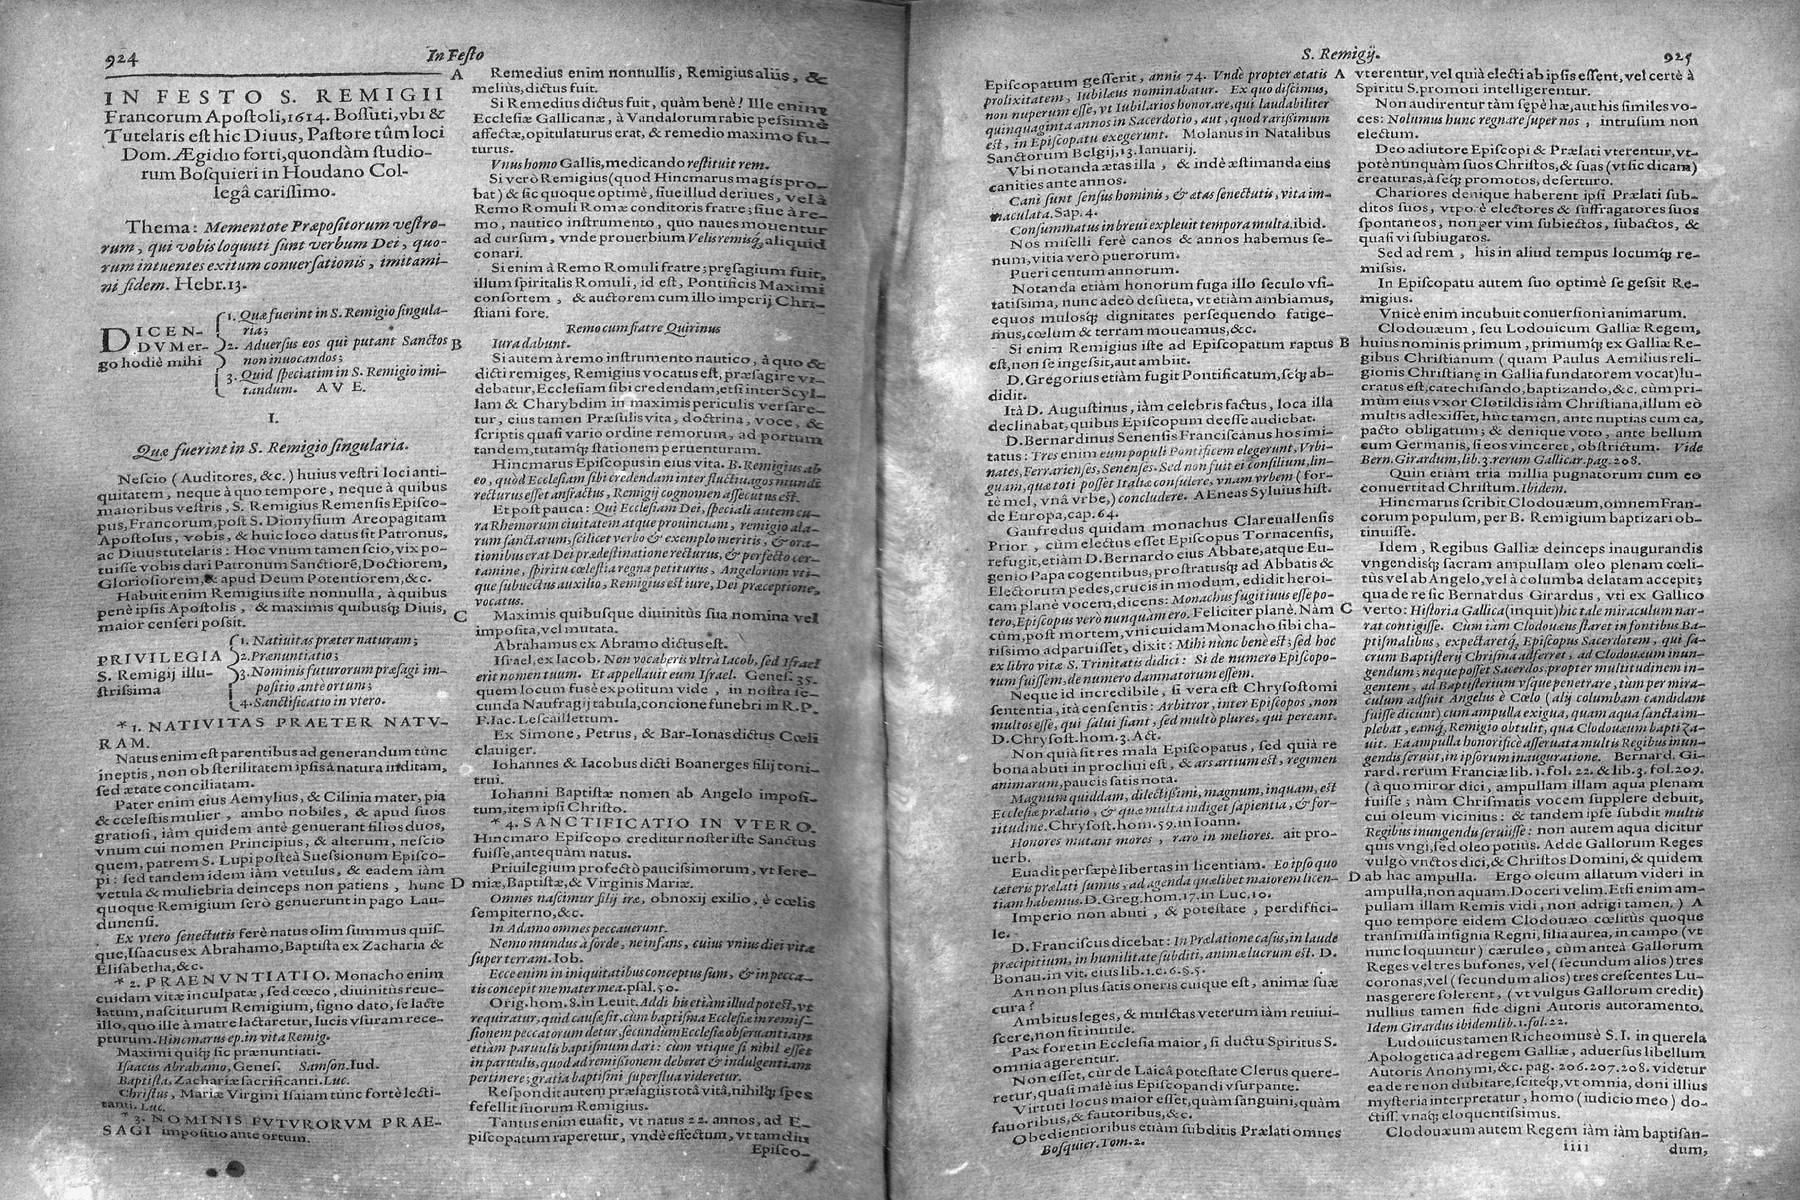 924
In Festo
IN FESTO S. REMIGII
Francorum Apoſtoli, 1614. Boſſuti, vbi &
Tutelaris eſt hic Diuus, Paſtore tûm loci
Dom. Ægidio forti, quondàm ſtudio-
rum Boſquieri in Houdano Col-
legâ cariſſimo.
Thema: Mementote Præpoſitorum veſtro-
rum, qui vobis loquuti ſunt verbum Dei, quo-
rum intuentes exitum conuerſationis, imitami-
ni fidem. Hebr. 13.
DICEN-
DVM er-
go hodiè mihi
1. Quæ fuerint in S. Remigio ſingula-
ria;
2. Aduerſus eos qui putant Sanctos
non inuocandos;
3. Quid ſpeciatim in S. Remigio imi-
tandum. AVE.
I.
Quæ fuerint in S. Remigio ſingularia.
Neſcio (Auditores, &c.) huius veſtri loci anti-
quitatem, neque à quo tempore, neque à quibus
maioribus veſtris, S. Remigius Remenſis Epiſco-
pus, Francorum, poſt S. Dionyſium Areopagitam
Apoſtolus, vobis, & huic loco datus ſit Patronus,
ac Diuus tutelaris: Hoc vnum tamen ſcio, vix po-
tuiſſe vobis dari Patronum Sanctiorē, Doctiorem,
Glorioſiorem, & apud Deum Potentiorem, &c.
Habuit enim Remigius iſte nonnulla, à quibus
penè ipſis Apoſtolis, & maximis quibusq; Diuis,
maior cenſeri poſſit.
PRIVILEGIA
S. Remigij illu-
ſtriſsima
1. Natiuitas præter naturam;
2. Prænuntiatio;
3. Nominis futurorum præſagi im-
poſitio ante ortum;
4. Sanctificatio in vtero.
* 1. NATIVITAS PRAETER NATV-
RAM.
Natus enim eſt parentibus ad generandum tùnc
ineptis, non ob ſterilitatem ipſis à natura inditam,
ſed ætate conciliatam.
Pater enim eius Aemylius, & Cilinia mater, pia
& cœleſtis mulier, ambo nobiles, & apud ſuos
gratioſi, iàm quidem antè genuerant filios duos,
vnum cui nomen Principius, & alterum, neſcio
quem, patrem S. Lupi poſteà Sueſſionum Epiſco-
pi: ſed tandem idem iàm vetulus, & eadem iàm
vetula & muliebria deinceps non patiens, hunc
quoque Remigium ſerò genuerunt in pago Lau-
dunenſi.
Ex vtero ſenectutis ferè natus olim ſummus quiſ-
que, Iſaacus ex Abrahamo, Baptiſta ex Zacharia &
Eliſabetha, &c.
* 2. PRAENVNTIATIO. Monacho enim
cuidam vitæ inculpatæ, ſed cœco, diuinitùs reue-
latum, naſciturum Remigium, ſigno dato, ſe lacte
illo, quo ille à matre lactaretur, lucis vſuram rece-
pturum. Hincmarus ep. in vita Remig.
Maximi quiq; ſic prænuntiati.
Iſaacus Abrahamo, Geneſ. Samſon. Iud.
Baptiſta, Zachariæ ſacrificanti. Luc.
Chriſtus, Mariæ Virgini Iſaiam tunc fortè lecti-
tanti. Luc.
* 3. NOMINIS FVTVRORVM PRAE-
SAGI impoſitio ante ortum.
A
Remedius enim nonnullis, Remigius aliis, &
melius, dictus fuit.
Si Remedius dictus fuit, quàm benè! Ille enim
Eccleſiæ Gallicanæ, à Vandalorum rabie peſsimè
affectæ, opitulaturus erat, & remedio maximo fu-
turus.
Vnus homo Gallis, medicando reſtituit rem.
Si verò Remigius (quod Hincmarus magis pro-
bat) & ſic quoque optimè, ſiue illud deriues, vel à
Remo Romuli Romæ conditoris fratre; ſiue à re-
mo, nautico inſtrumento, quo naues mouentur
ad curſum, vnde prouerbium Velis remisq́; aliquid
conari.
Si enim à Remo Romuli fratre; pręſagium fuit,
illum ſpiritalis Romuli, id eſt, Pontificis Maximi
conſortem, & auctorem cum illo imperij Chri-
ſtiani fore.
Remo cum fratre Quirinus
B
Iura dabunt.
Si autem à remo inſtrumento nautico, à quo &
dicti remiges, Remigius vocatus eſt, præſagire vi-
debatur, Eccleſiam ſibi credendam, etſi inter Scyl-
lam & Charybdim in maximis periculis verſare-
tur, eius tamen Præſulis vita, doctrina, voce, &
ſcriptis quaſi vario ordine remorum, ad portum
tandem, tutamq; ſtationem peruenturam.
Hincmarus Epiſcopus in eius vita. B. Remigius ab
eo, quòd Eccleſiam ſibi credendam inter fluctiuagos mundi
recturus eſſet anfractus, Remigij cognomen aſſecutus eſt.
Et poſt pauca: Qui Eccleſiam Dei, ſpeciali autem cu-
ra Rhemorum ciuitatem atque prouinciam, remigio ala-
rum ſanctarum, ſcilicet verbo & exemplo meritis, & ora-
tionibus erat Dei prædeſtinatione recturus, & perfecto cer-
tamine, ſpiritu cœleſtia regna petiturus, Angelorum vti-
que ſubuectus auxilio, Remigius eſt iure, Dei præceptione,
vocatus.
C
Maximis quibuſque diuinitùs ſua nomina vel
impoſita, vel mutata.
Abrahamus ex Abramo dictus eſt.
Iſrael, ex Iacob. Non vocaberis vltrà Iacob, ſed Iſrael
erit nomen tuum. Et appellauit eum Iſrael. Geneſ. 35.
quem locum fusè expoſitum vide, in noſtra ſe-
cunda Naufragij tabula, concione funebri in R. P.
F. Iac. Leſcaillettum.
Ex Simone, Petrus, & Bar-Ionas dictus Cœli
clauiger.
Iohannes & Iacobus dicti Boanerges filij toni-
trui.
Iohanni Baptiſtæ nomen ab Angelo impoſi-
tum, item ipſi Chriſto.
* 4. SANCTIFICATIO IN VTERO.
Hincmaro Epiſcopo creditur noſter iſte Sanctus
fuiſſe, antequàm natus.
Priuilegium profectò pauciſsimorum, vt Iere-
D
miæ, Baptiſtæ, & Virginis Mariæ.
Omnes naſcimur filij iræ, obnoxij exilio, è cœlis
ſempiterno, &c.
In Adamo omnes peccauerunt.
Nemo mundus à ſorde, ne infans, cuius vnius diei vita
ſuper terram. Iob.
Ecce enim in iniquitatibus conceptus ſum, & in pecca-
tis concepit me mater mea. pſal. 50.
Orig. hom. 8. in Leuit. Addi his etiàm illud poteſt, vt
requiratur, quid cauſæ ſit, cùm baptiſma Eccleſiæ in remiſ-
ſionem peccatorum detur, ſecundum Eccleſiæ obſeruantiam
etiàm paruulis baptiſmum dari: cùm vtique ſi nihil eſſet
in paruulis, quod ad remiſsionem deberet & indulgentiam
pertinere; gratia baptiſmi ſuperflua videretur.
Reſpondit autem præſagiis totâ vitâ, nihilq; ſpes
fefellit ſuorum Remigius.
Tantus enim euaſit, vt natus 22. annos, ad E-
piſcopatum raperetur, vndè effectum, vt tamdiu
Epiſco-
S. Remigij.
925
Epiſcopatum geſſerit, annis 74. Vndè propter ætatis
prolixitatem, Iubilæus nominabatur. Ex quo diſcimus,
non nuperum eſſe, vt Iubilarios honorare, qui laudabiliter
quinquaginta annos in Sacerdotio, aut, quod rariſsimum
est, in Epiſcopatu exegerunt. Molanus in Natalibus
Sanctorum Belgij, 13. Ianuarij.
Vbi notanda ætas illa, & indè æſtimanda eius
canities ante annos.
Cani ſunt ſenſus hominis, & ætas ſenectutis, vita im-
maculata. Sap. 4.
Conſummatus in breui expleuit tempora multa. ibid.
Nos miſelli ferè canos & annos habemus ſe-
num, vitia verò puerorum.
Pueri centum annorum.
Notanda etiàm honorum fuga illo ſeculo vſi-
tatiſsima, nunc adeò deſueta, vt etiàm ambiamus,
equos mulosq; dignitates perſequendo fatige-
mus, cœlum & terram moueamus, &c.
Si enim Remigius iſte ad Epiſcopatum raptus
eſt, non ſe ingeſsit, aut ambiit.
D. Gregorius etiàm fugit Pontificatum, ſeq́; ab-
didit.
Ità D. Auguſtinus, iàm celebris factus, loca illa
declinabat, quibus Epiſcopum deeſſe audiebat.
D. Bernardinus Senenſis Franciſcanus hos imi-
tatus: Tres enim eum populi Pontificem elegerunt, Vrbi-
nates, Ferrarienſes, Senenſes. Sed non fuit ei conſilium, lin-
guam, quæ toti poſſet Italiæ conſulere, vnam vrbem (for-
tè mel, vnâ vrbe,) concludere. AEneas Syluius hiſt.
de Europa, cap. 64.
Gaufredus quidam monachus Clareuallenſis
Prior, cùm electus eſſet Epiſcopus Tornacenſis,
refugit, etiàm D. Bernardo eius Abbate, atque Eu-
genio Papa cogentibus, proſtratusq; ad Abbatis &
Electorum pedes, crucis in modum, edidit heroi-
cam planè vocem, dicens: Monachus fugitiuus eſſe po-
tero, Epiſcopus verò nunquam ero. Feliciter planè. Nàm
cùm, poſt mortem, vni cuidam Monacho ſibi cha-
riſsimo adparuiſſet, dixit: Mihi nùnc benè est; ſed hoc
ex libro vitæ S. Trinitatis didici: Si de numero Epiſcopo-
rum fuiſſem, de numero damnatorum eſſem.
Neque id incredibile, ſi vera eſt Chryſoſtomi
ſententia, ità cenſentis: Arbitror, inter Epiſcopos, non
multos eſſe, qui ſalui fiant, ſed multò plures, qui pereant.
D. Chryſoſt. hom. 3. Act.
Non quià ſit res mala Epiſcopatus, ſed quià re
bona abuti in procliui eſt, & ars artium est, regimen
animarum, paucis ſatis nota.
Magnum quiddam, dilectiſsimi, magnum, inquam, est
Eccleſiæ prælatio, & quæ multa indiget ſapientia, & for-
titudine. Chryſoſt. hom. 59. in Ioann.
Honores mutant mores, raro in meliores. ait pro-
uerb.
Euadit perſæpè libertas in licentiam. Eo ipſo quo
cæteris prælati ſumus, ad agenda quælibet maiorem licen-
tiam habemus. D. Greg. hom. 17. in Luc. 10.
Imperio non abuti, & poteſtate, perdiffici-
le.
D. Franciſcus dicebat: In Prælatione caſus, in laude
præcipitium, in humilitate ſubditi, animæ lucrum est. D.
Bonau. in vit. eius lib. 1. c. 6. §. 5.
An non plus ſatis oneris cuique eſt, animæ ſuæ
cura?
Ambitus leges, & mulctas veterum iàm reuiui-
ſcere, non ſit inutile.
Pax foret in Eccleſia maior, ſi ductu Spiritus S.
omnia agerentur.
Non eſſet, cur de Laicâ poteſtate Clerus quere-
retur, quaſi malè ius Epiſcopandi vſurpante.
Virtuti locus maior eſſet, quàm ſanguini, quàm
fauoribus, & fautoribus, &c.
Obedientioribus etiàm ſubditis Prælati omnes
Boſquier. Tom. 2.
A
vterentur, vel quià electi ab ipſis eſſent, vel certè à
Spiritu S. promoti intelligerentur.
Non audirentur tàm ſępè hæ, aut his ſimiles vo-
ces: Nolumus hunc regnare ſuper nos, intruſum non
electum.
Deo adiutore Epiſcopi & Prælati vterentur, vt-
potè nunquàm ſuos Chriſtos, & ſuas (vt ſic dicam)
creaturas, à ſeq́; promotos, deſerturo.
Chariores denique haberent ipſi Prælati ſub-
ditos ſuos, vtpotè electores & ſuffragatores ſuos
ſpontaneos, non per vim ſubiectos, ſubactos, &
quaſi vi ſubiugatos.
Sed ad rem, his in aliud tempus locumq; re-
miſsis.
In Epiſcopatu autem ſuo optimè ſe geſsit Re-
migius.
Vnicè enim incubuit conuerſioni animarum.
Clodouæum, ſeu Lodouicum Galliæ Regem,
B
huius nominis primum, primumq; ex Galliæ Re-
gibus Chriſtianum (quam Paulus Aemilius reli-
gionis Chriſtianę in Gallia fundatorem vocat) lu-
cratus eſt, catechiſando, baptizando, &c. cùm pri-
mùm eius vxor Clotildis iàm Chriſtiana, illum eò
multis adlexiſſet, hùc tamen, ante nuptias cum ea,
pacto obligatum; & denique voto, ante bellum
cum Germanis, ſi eos vinceret, obſtrictum. Vide
Bern. Girardum, lib. 3. rerum Gallicar. pag. 208.
Quin etiàm tria millia pugnatorum cum eo
conuertit ad Chriſtum. Ibidem.
Hincmarus ſcribit Clodouæum, omnem Fran-
corum populum, per B. Remigium baptizari ob-
tinuiſſe.
Idem, Regibus Galliæ deinceps inaugurandis
vngendisq; ſacram ampullam oleo plenam cœli-
tùs vel ab Angelo, vel à columba delatam accepit;
qua de re ſic Bernardus Girardus, vti ex Gallico
C
verto: Hiſtoria Gallica (inquit) hic tale miraculum nar-
rat contigiſſe. Cùm iàm Clodouæus ſtaret in fontibus Ba-
ptiſmalibus, expectaretq́;, Epiſcopus Sacerdotem, qui ſa-
crum Baptiſterij Chriſma adferret, ad Clodouæum inun-
gendum; neque poſſet Sacerdos, propter multitudinem in-
gentem, ad Baptiſterium vſque penetrare, tùm per mira-
culum adfuit Angelus è Cœlo (alij columbam candidam
fuiſſe dicunt) cum ampulla exigua, quam aqua ſancta im-
plebat, eamq́; Remigio obtulit, qua Clodouæum baptiza-
uit. Ea ampulla honorificè aſſeruata multis Regibus inun-
gendis ſeruiit, in ipſorum inauguratione. Bernard. Gi-
rard. rerum Franciæ lib. 1. fol. 22. & lib. 3. fol. 209.
(à quo miror dici, ampullam illam aqua plenam
fuiſſe; nàm Chriſmatis vocem ſupplere debuit,
cui oleum vicinius: & tandem ipſe ſubdit multis
Regibus inungendu ſeruiiſſe: non autem aqua dicitur
quis vngi, ſed oleo potius. Adde Gallorum Reges
vulgò vnctos dici, & Chriſtos Domini, & quidem
D
ab hac ampulla. Ergo oleum allatum videri in
ampulla, non aquam. Doceri velim. Etſi enim am-
pullam illam Remis vidi, non adtigi tamen.) A
quo tempore eidem Clodouæo cœlitùs quoque
tranſmiſſa inſignia Regni, lilia aurea, in campo (vt
nunc loquuntur) cæruleo, cùm anteà Gallorum
Reges vel tres bufones, vel (ſecundum alios) tres
coronas, vel (ſecundum alios) tres creſcentes Lu-
nas gerere ſolerent, (vt vulgus Gallorum credit)
nullius tamen fide digni Autoris autoramento.
Idem Girardus ibidem lib. 1. fol. 22.
Ludouicus tamen Richeomus è S. I. in querela
Apologetica ad regem Galliæ, aduerſus libellum
Autoris Anonymi, &c. pag. 206. 207. 208. videtur
ea de re non dubitare, ſciteq́;, vt omnia, doni illius
myſteria interpretatur, homo (iudicio meo) do-
ctiſſ. vnaq; eloquentiſsimus.
Clodouæum autem Regem iàm iàm baptiſan-
Iiii
dum,